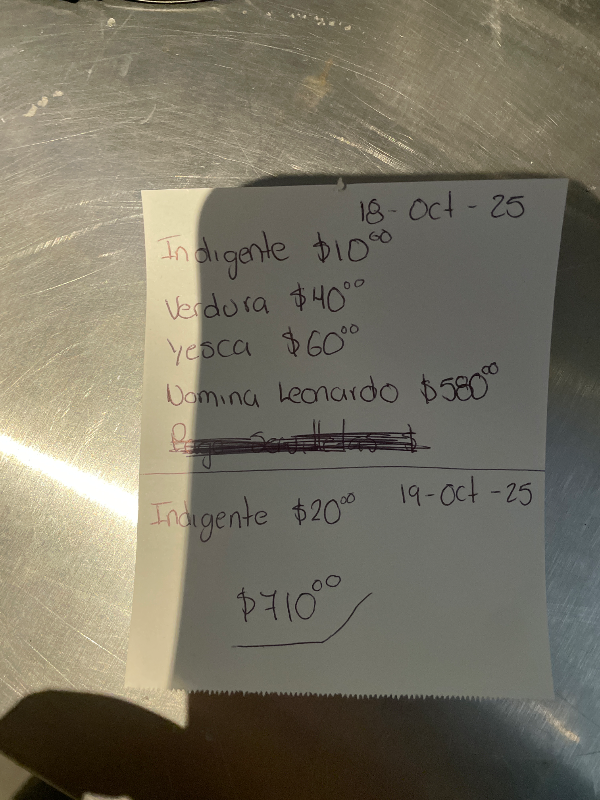 18-Oct-25
Indigente $10⁰⁰
Verdura $40⁰⁰
Yesca $60⁰⁰
Nomina Leonardo $580⁰⁰
Indigente $20⁰⁰ 19-Oct-25
$710⁰⁰